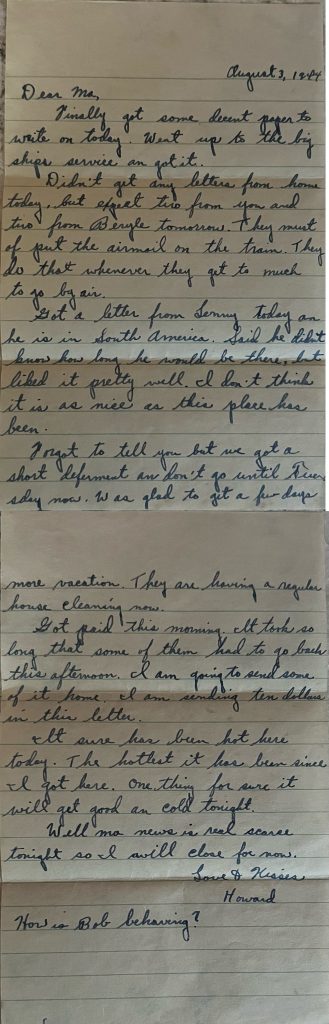 August 3, 1944
Dear Ma,
Finally got some decent paper to
write on today. Went up to the big
ships service an got it.
Didn't get any letters from home
today, but expect two from you and
two from Beryle tomorrow. They must
of put the airmail on the train. They
do that whenever they get to much
to go by air.
Got a letter from Lenny today an
he is in South America. Said he didn't
know how long he would be there, but
liked it pretty well. I don't think
it is as nice as this place has
been.
Forgot to tell you but we got a
short deferment an don't go until Tues
sday now. Was glad to get a few days
more vacation. They are having a regular
house cleaning now.
Got paid this morning. It took so
long that some of them had to go back
this afternoon. I am going to send some
of it home. I am sending ten dollars
in this letter.
It sure has been hot here
today. The hottest it has been since
I got here. One thing for sure it
will get good an cold tonight.
Well ma news is real scarce
tonight so I will close for now.
Love & Kisses
Howard
How is Bob behaving?